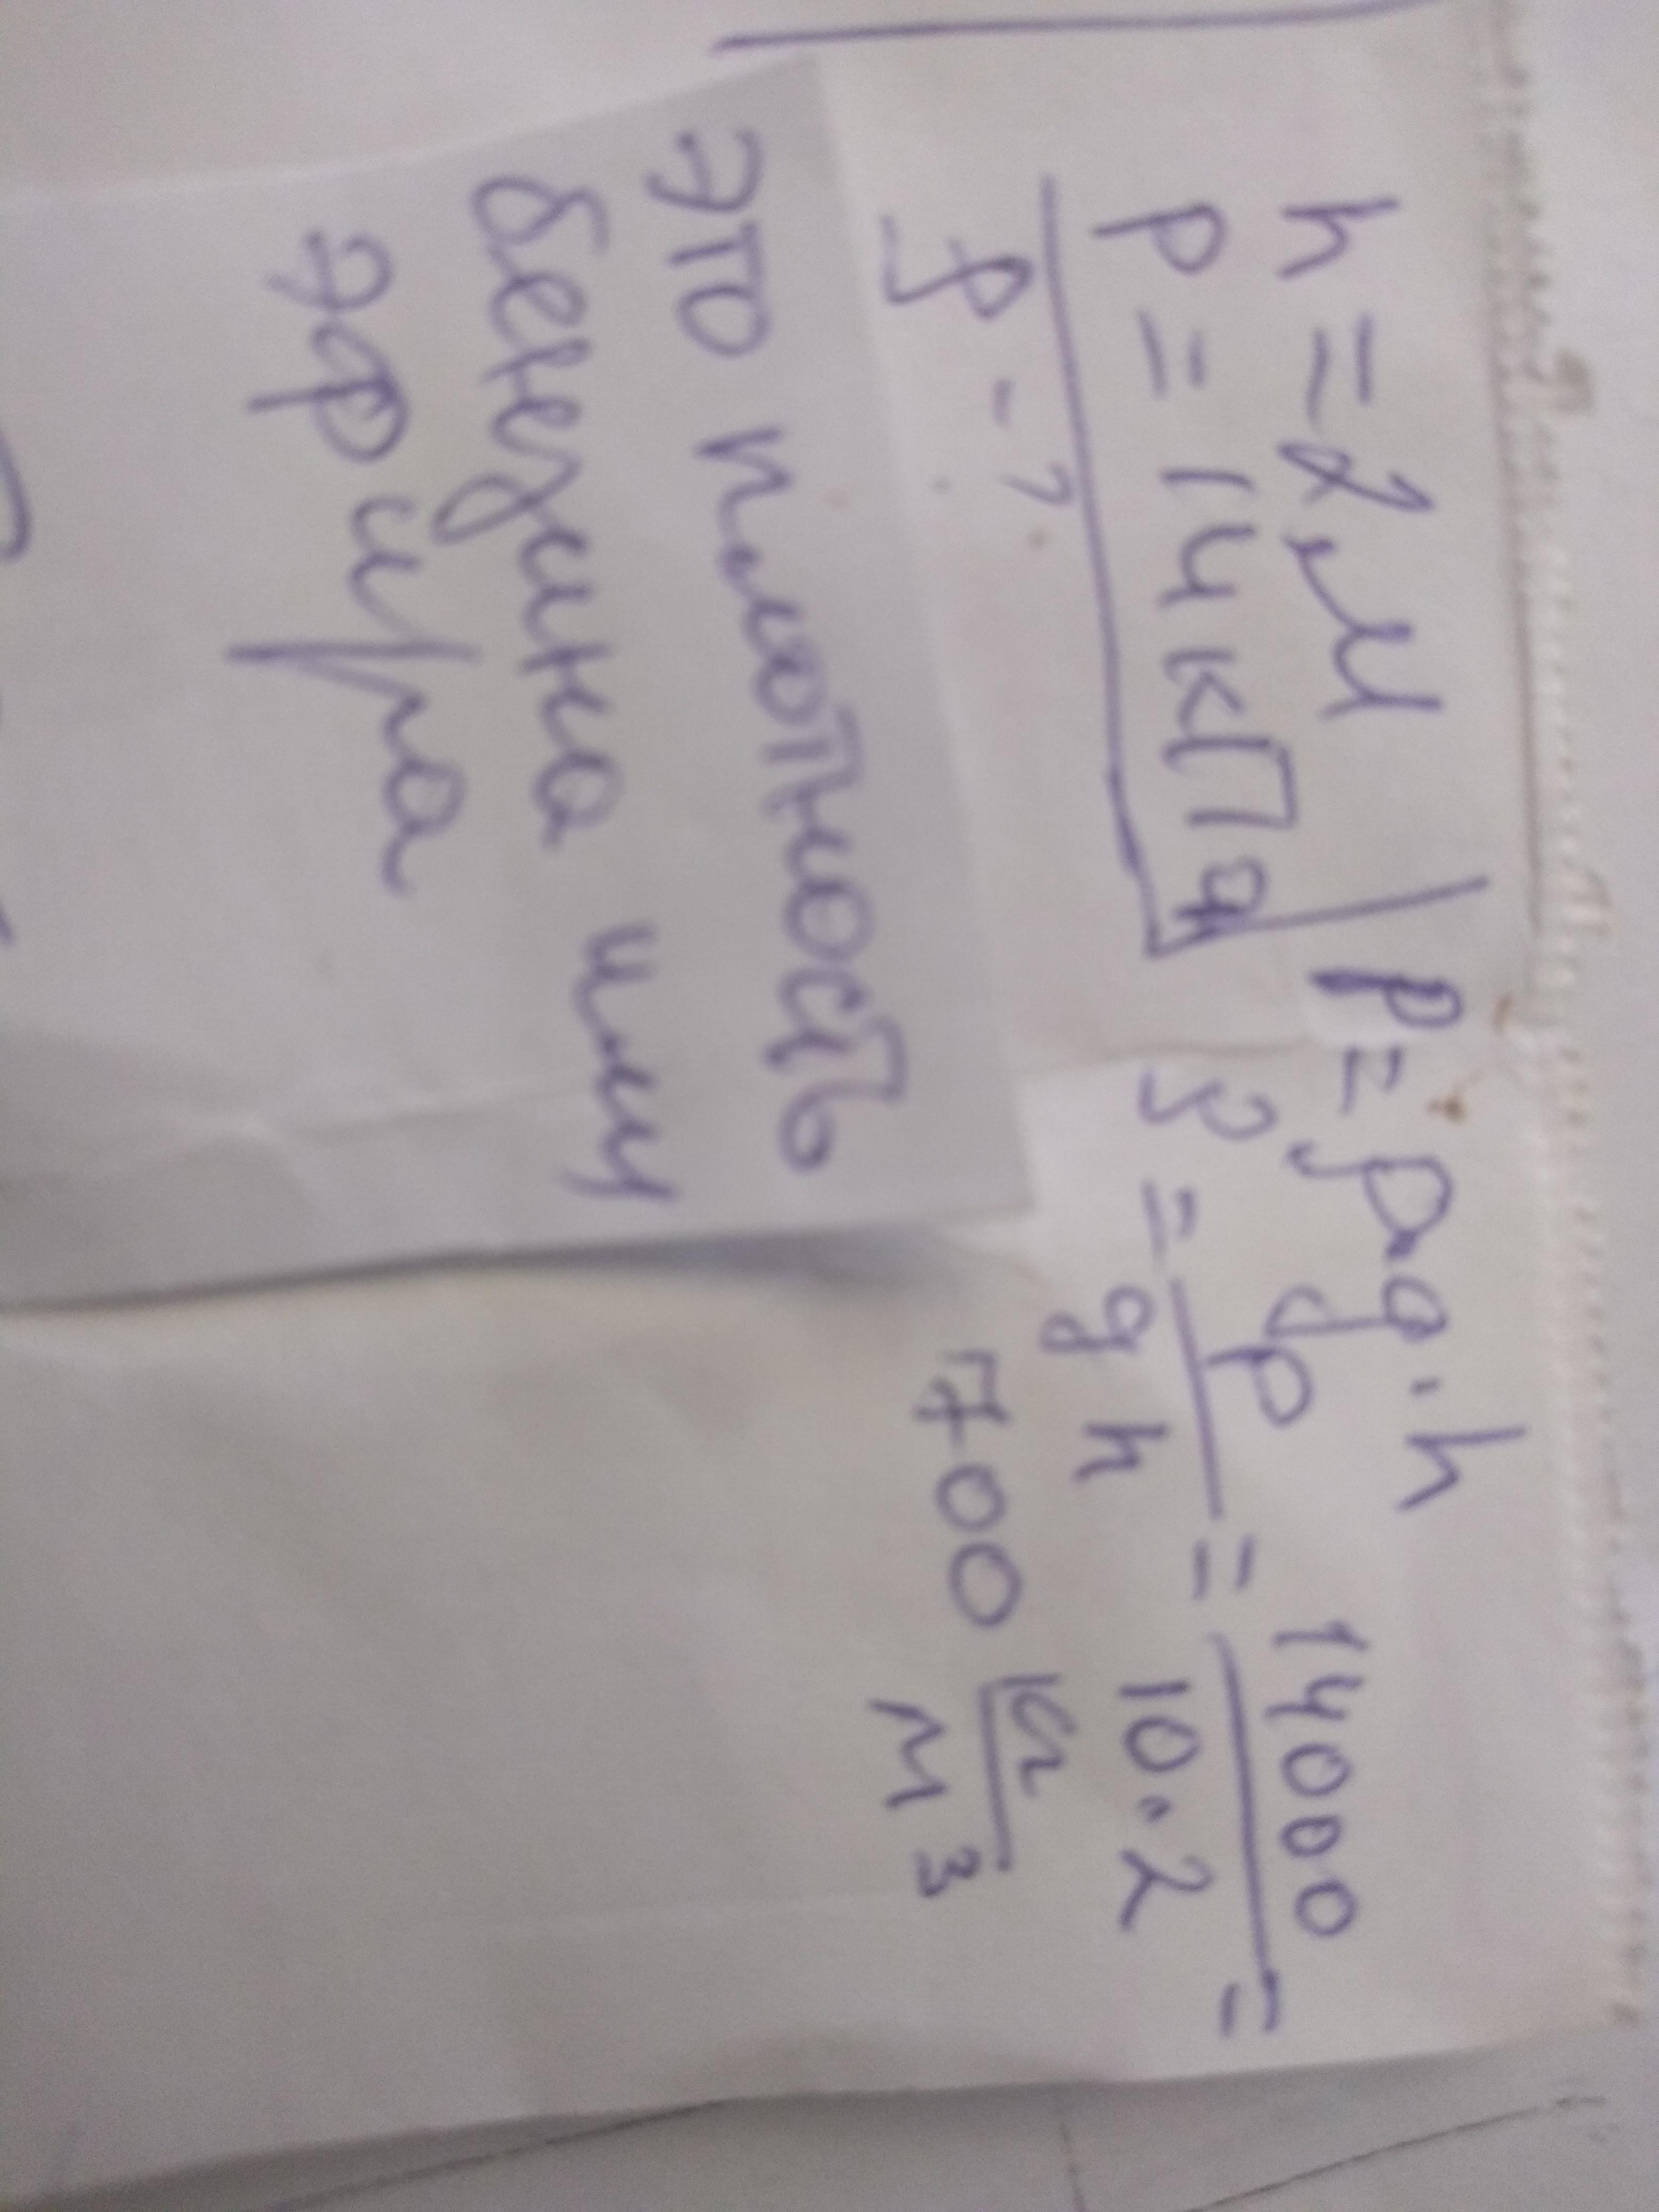 h = 2м
P = 14кПа
ρ - ?
P = ρg·h
ρ = P / gh = 14000 / 10·2 =
700 кг/м³
это плотность
бензина или
эфира